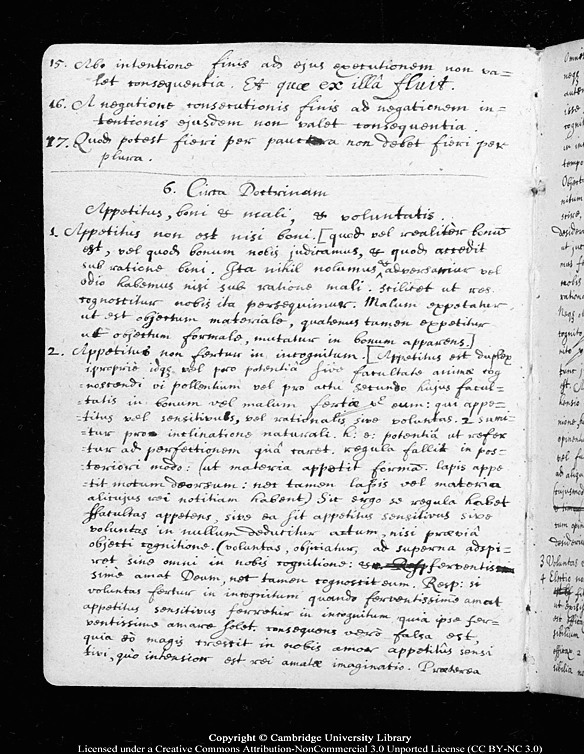 15. Abs intentione finis ad ejus executionem non va=
let consequentia. Et quæ ex illâ fluit.
16. A negatione consecutionis finis ad negationem in=
tentionis ejusdem non valet consequentia.
17. Quod potest fieri per pauciora non debet fieri per
plura.
6. Circa Doctrinam
Appetitus, boni & mali, & voluntatis.
1. Appetitus non est nisi boni. [quod vel realiter bonū
est, vel quod bonum nobis judicamus, & quod accedit
sub ratione boni. Ita nihil nolumus, adversamur vel
odio habemus nisi sub ratione mali. scilicet ut res
cognoscitur nobis ita persequimur. Malum expetatur
ut est objectum materiale, quatenus tamen expetitur
ut objectum formale, mutatur in bonum apparens.]
2. Appetitus non fertur in incognitum. [Appetitus est duplex
1 propriè idqꝫ vel pro potentia sive facultate animæ cog
=noscendi vi pollentium vel pro actu secundo hujus facul=
=tatis in bonum vel malum eum: qui appe=
=titus vel sensitivus, vel rationalis sive voluntas. 2 sumi=
=tur pro inclinatione naturali. h: e: potentiâ ut refer
=tur ad perfectionem quâ caret. regula fallit in pos=
=teriori modo: (ut materia appetit formā. lapis appe
=tit motum deorsum: nec tamen lapis vel materia
alicujus rei notitiam habent) Sic ergo se regula habet
facultas appetens, sive ea sit appetitus sensitivus sive
voluntas in nullum deducitur actum, nisi præviâ
objecti cognitione. (voluntas, objiciatur, ad superna adspi=
ret sine omni in nobis cognitione: ferventis
sime amat Deum, nec tamen cognoscit eum. Resp: si
voluntas fertur in incognitum quando ferventissimè amat
appetitus sensitivus ferretur in incognitum quia ipse fer=
ventissime amare solet. consequens verò falsa est,
quia eò magis crescit in nobis amor appetitûs sensi
tivi, quò intensior est rei amatæ imaginatio. Præterea
Copyright © Cambridge University Library
Licensed under a Creative Commons Attribution-NonCommercial 3.0 Unported License (CC BY-NC 3.0)